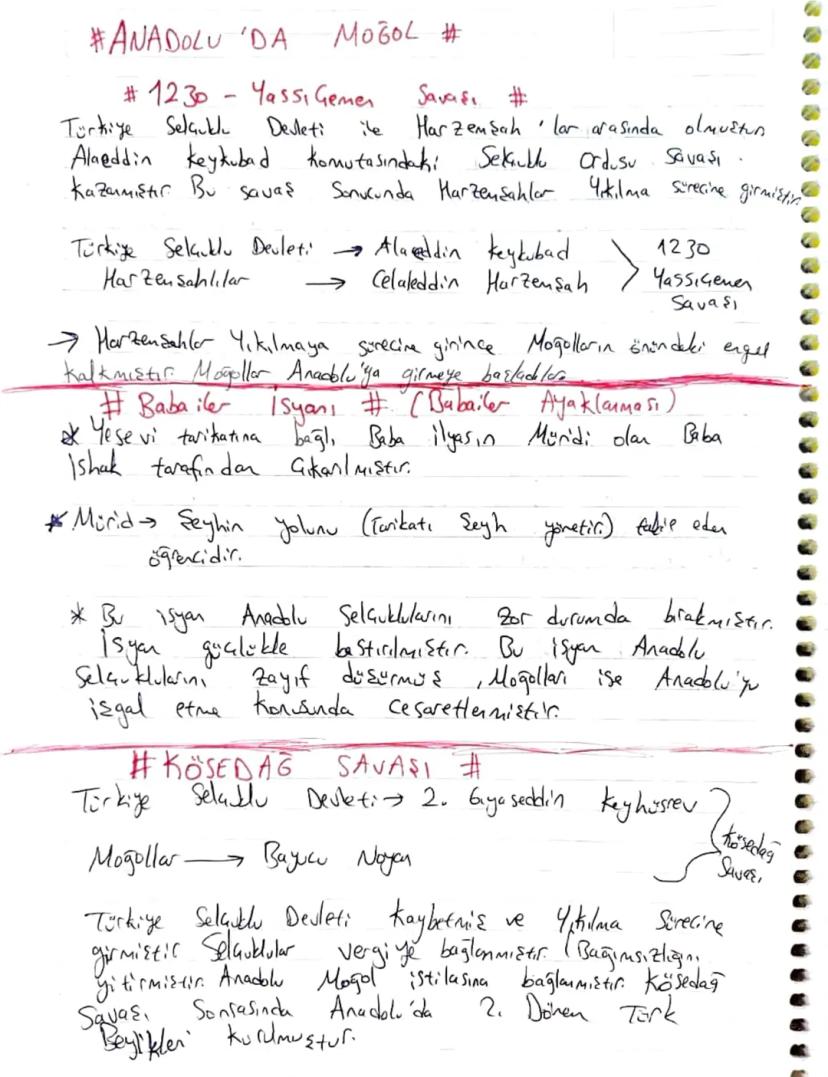 #ANADOLU'DA MOĞOL #
# 1230 - Yassıçemen Savaşı #
Türkiye Selçuklu Devleti ile Harzemşah'lar arasında olmuştur.
Alaeddin keykubad komutasındaki Selçuklu Ordusu Savaşı.
Kazanmıştır. Bu savaş Sonucunda Harzemşahlar Yıkılma sürecine girmiştir.
Türkiye Selçuklu Devleti → Alaeddin keykubad 1230
Harzemşahlılar → Celaleddin Harzemşah Yassıçemen
Savaşı
→ Harzemşahlar Yıkılmaya sürecine girince Moğolların önündeki engel
kalkmıştır. Moğollar Anadolu'ya girmeye başladılar.
# Babailer İsyanı # (Babailer Ayaklanması)
* Yesevi tarikatına bağlı Baba ilyasın Müridi olan Baba
İshak tarafından Çıkarılmıştır.
* Mürid → Şeyhin yolunu (Tarikatı Şeyh yönetir.) takip eden
öğrencidir.
* Bu isyan Anadolu Selçuklularını zor durumda bırakmıştır.
İsyan güçlükle bastırılmıştır. Bu isyan Anadolu
Selçuklularını zayıf düşürmüş, Moğolları ise Anadolu'yu
işgal etme konusunda cesaretlenmiştir.
# KÖSEDAĞ SAVAŞI #
Türkiye Selçuklu Devleti → 2. Gıyaseddin Keyhüsrev
Kösedağ
Savaşı
Moğollar → Baycu Noyan
Türkiye Selçuklu Devleti Kaybetmiş ve Yıkılma Sürecine
girmiştir. Selçuklular vergiye bağlanmıştır. (Bağımsızlığını
yitirmiştir. Anadolu Moğol istilasına bağlanmıştır. Kösedağ
Savaşı Sonrasında Anadolu'da 2. Dönem Türk
Beylikleri kurulmuştur.